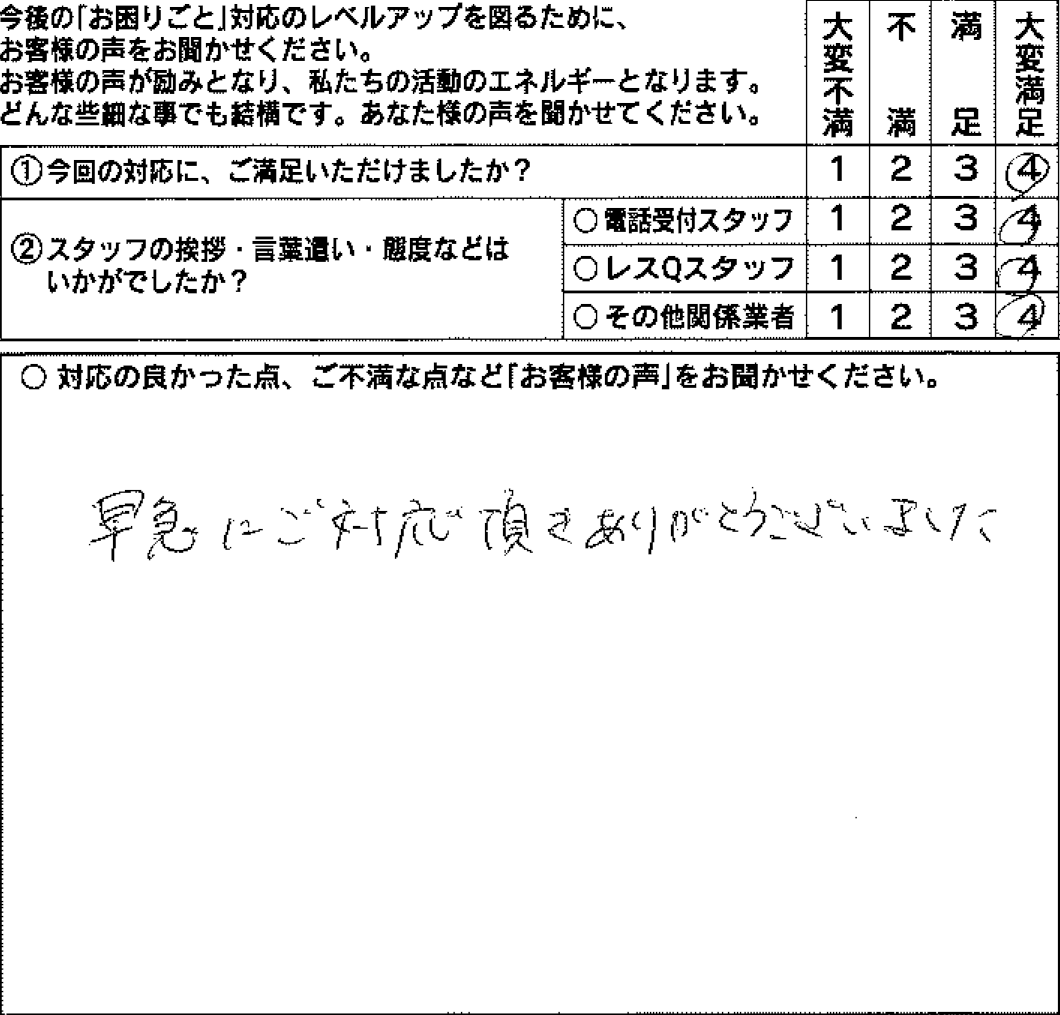 今後の｢お困りごと｣対応のレベルアップを図るために、
お客様の声をお聞かせください。
お客様の声が励みとなり、私たちの活動のエネルギーとなります。
どんな些細な事でも結構です。あなた様の声を聞かせてください。
大変不満 不満 満足 大変満足
①今回の対応に、ご満足いただけましたか？ 1 2 3 4
②スタッフの挨拶・言葉遣い・態度などは
いかがでしたか？
○電話受付スタッフ 1 2 3 4
○レスQスタッフ 1 2 3 4
○その他関係業者 1 2 3 4
○ 対応の良かった点、ご不満な点など｢お客様の声｣をお聞かせください。
早急にご対応頂きありがとうございました